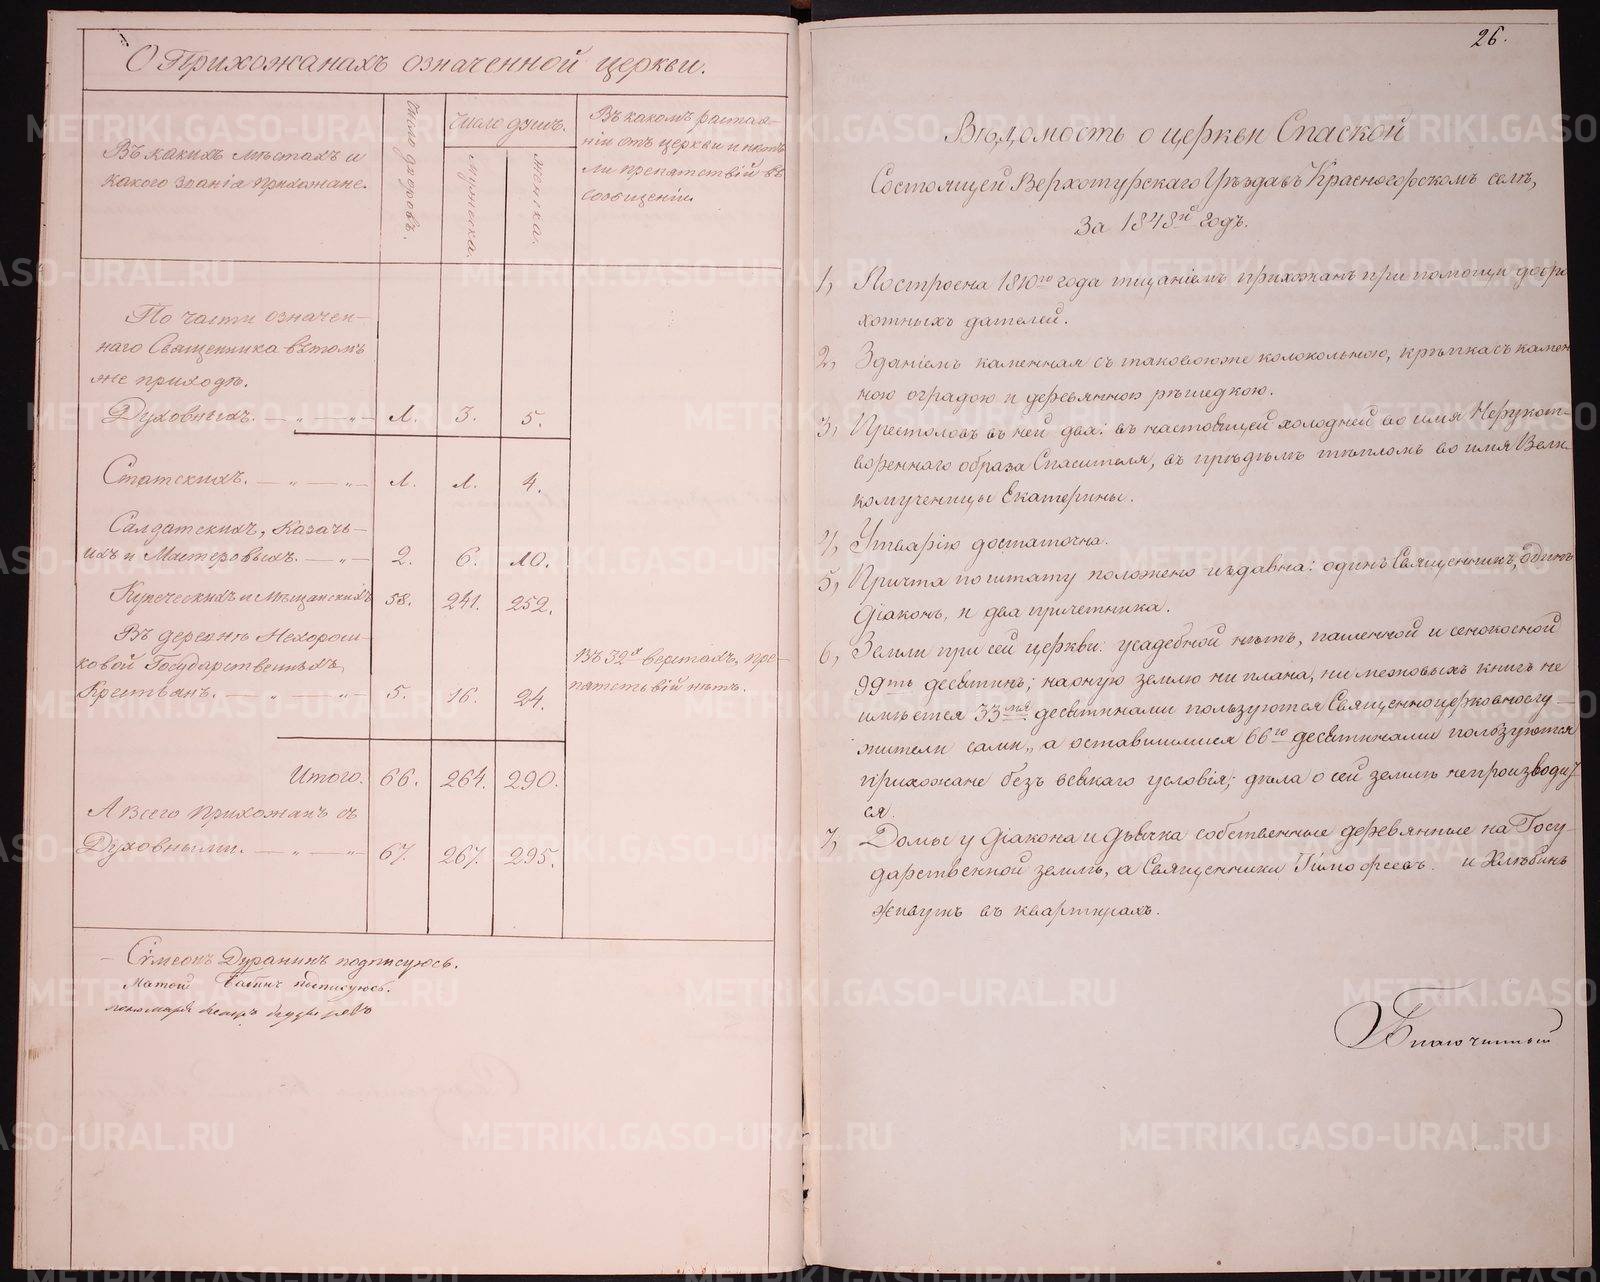 О Прихожанахъ означенной церкви.
Въ какихъ мѣстахъ и
какого званія прихожане.
Число дворовъ.
Число душъ.
Мужеска.
Женска.
Въ какомъ растоя-
ніи отъ церкви и нѣтъ
ли препятствій въ
сообщеніи.
По части означен-
наго Священника въ томъ
же приходѣ.
Духовныхъ. — „ — „ — 1. 3. 5.
Статскихъ. — „ — „ — 1. 1. 4.
Салдатскихъ, Казачь-
ихъ и Мастеровыхъ. — „ — 2. 6. 10.
Купеческихъ и Мѣщанскихъ 58. 241. 252.
Въ деревнѣ Нехорош-
ковой Государственныхъ
Крестьянъ. — „ — „ — 5. 16. 24.
Въ 32х верстахъ, пре-
пятствій нѣтъ.
Итого. 66. 264. 290.
А всего прихожанъ съ
Духовными. — „ — „ — 67. 267. 295.
Сѵмеонъ Дуранинъ подписуюсь.
подписуюсь.
26.
Вѣдомость о церкви Спаской
Состоящей Верхотурскаго Уѣзда въ Красногорскомъ селѣ,
За 1848й годъ.
1, Построена 1810го года тщаніемъ прихожанъ при помощи добро
хотныхъ дателей.
2, Зданіемъ каменная съ таковоюже колокольною, крѣпка съ камен
ною оградою и деревянною рѣшедкою.
3, Престоловъ въ ней два: въ настоящей холодней во имя Нерукот-
вореннаго образа Спасителя, въ придѣлѣ тепломъ во имя Вели-
комученицы Екатерины.
4, Утварію достаточна.
5, Причта по штату положено издавна: одинъ Священникъ, одинъ
діаконъ, и два причетника.
6, Земли при сей церкви: усадебной нѣтъ, пашенной и сенокосной
99ть десятинъ; на оную землю ни плана, ни межовыхъ книгъ не
имѣется 33мя десятинами пользуются Священноцерковнослу-
жители сами, а оставшимися 66ю десятинами пользуются
прихожане безъ всякаго условія; дѣла о сей землѣ непроизводит-
ся.
7, Домы у діакона и дьячка собственные деревянные на Госу-
дарственной землѣ, а Священники Тимофеевъ и Хлѣбинъ
живутъ въ квартирахъ.
Благочинный
METRIKI.GASO-URAL.RU